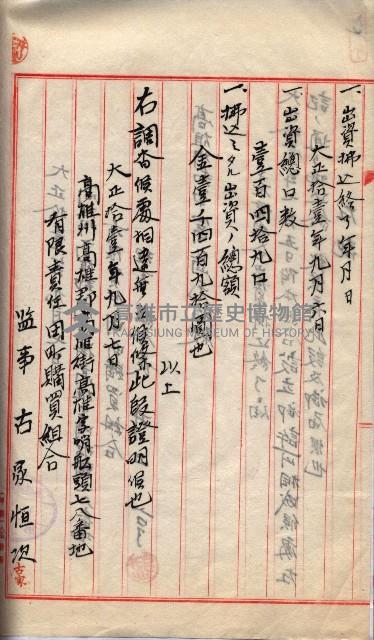 一、出資拂込終了年月日
大正拾壹年九月六日
一、出資總口數
壹百四拾九口
一、拂込ミタル出資ノ總額
金壹千四百九拾圓也
以上
右調査候處相違無之候條此段證明候也
大正拾壹年九月七日
高雄州高雄郡高雄街高雄字哨船頭七八番地
有限責任田町購買組合
监事 古家恒次
高雄市立歷史博物館
KAOHSIUNG MUSEUM OF HISTORY